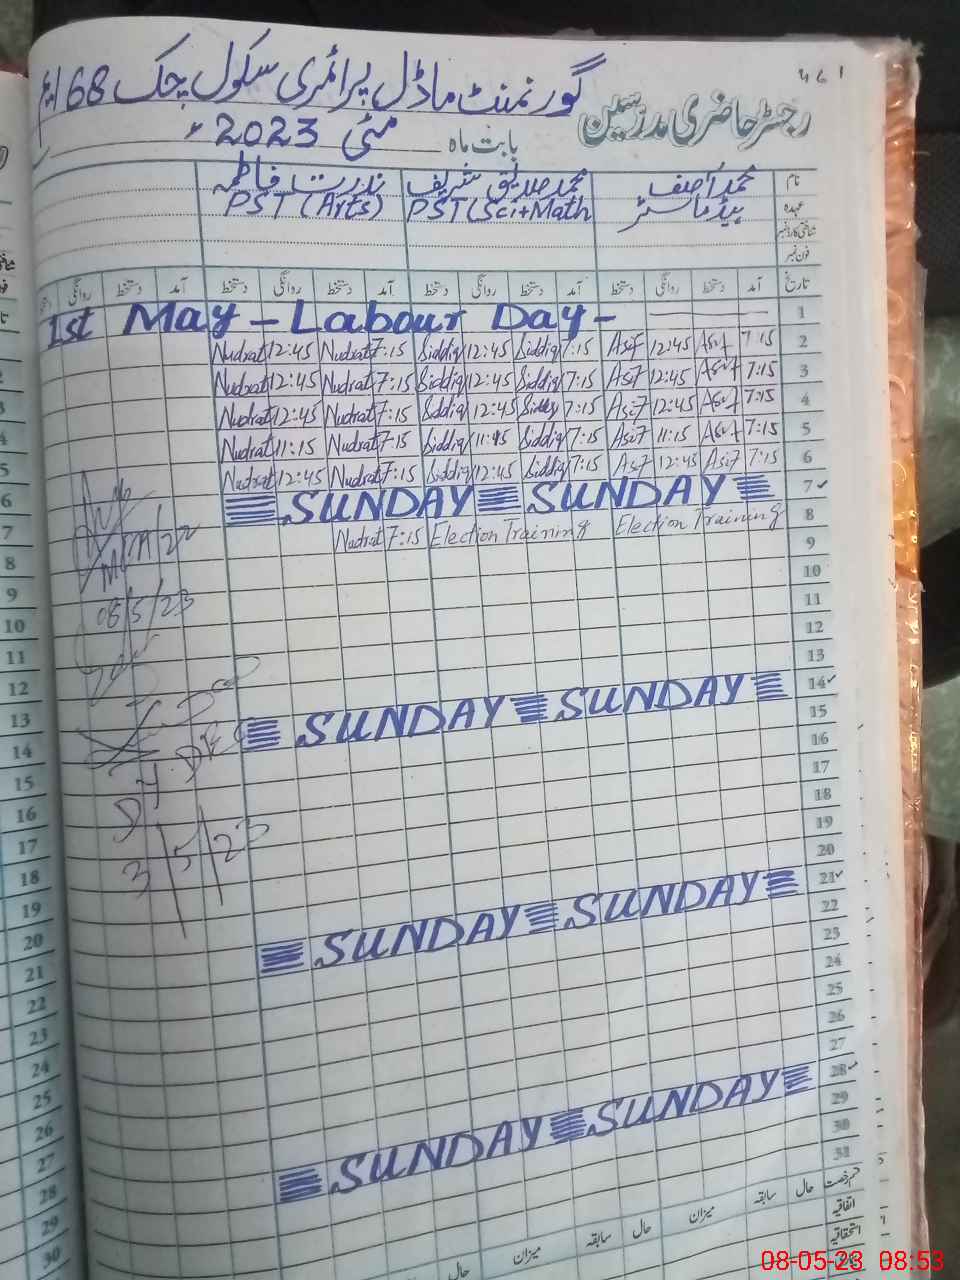 ۱ ۶ ۲
گورنمنٹ ماڈل پرائمری سکول چک 68 ایم
رجسٹر حاضری مدرسین
بابت ماہ مئی 2023ء
نام محمد آصف محمد صدیق شریف ندرت فاطمہ
عہدہ ہیڈ ماسٹر PST (Sci+Math PST (Arts)
شناختی کارڈ نمبر
فون نمبر
تاریخ آمد دستخط روانگی دستخط آمد دستخط روانگی دستخط آمد دستخط روانگی دستخط آمد دستخط روانگی
1st May - Labour Day - 1
Nudrat 12:45 Nudrat 7:15 Siddiq 12:45 Siddiq 7:15 Asif 12:45 Asif 7:15 2
Nudrat 12:45 Nudrat 7:15 Siddiq 12:45 Siddiq 7:15 Asif 12:45 Asif 7:15 3
Nudrat 12:45 Nudrat 7:15 Siddiq 12:45 Siddiq 7:15 Asif 12:45 Asif 7:15 4
Nudrat 11:15 Nudrat 7:15 Siddiq Siddiq 7:15 Asif 11:15 Asif 7:15 5
Nudrat 12:45 Nudrat 7:15 Siddiq 12:45 Siddiq 7:15 Asif 12:45 Asif 7:15 6
SUNDAY SUNDAY 7
Nudrat 7:15 Election Training Election Training 8
9
10
08/5/23
11
12
13
SUNDAY SUNDAY 14
15
16
17
18
3/5/23
19
20
SUNDAY SUNDAY 21
22
23
24
25
26
27
SUNDAY SUNDAY 28
29
30
31
قسم رخصت حال سابقہ میزان حال سابقہ میزان حال
اتفاقیہ
استحقاقیہ
5
6
7
8
9
10
11
12
13
14
15
16
17
18
19
20
21
22
23
24
25
26
27
28
29
30
08-05-23 08:53